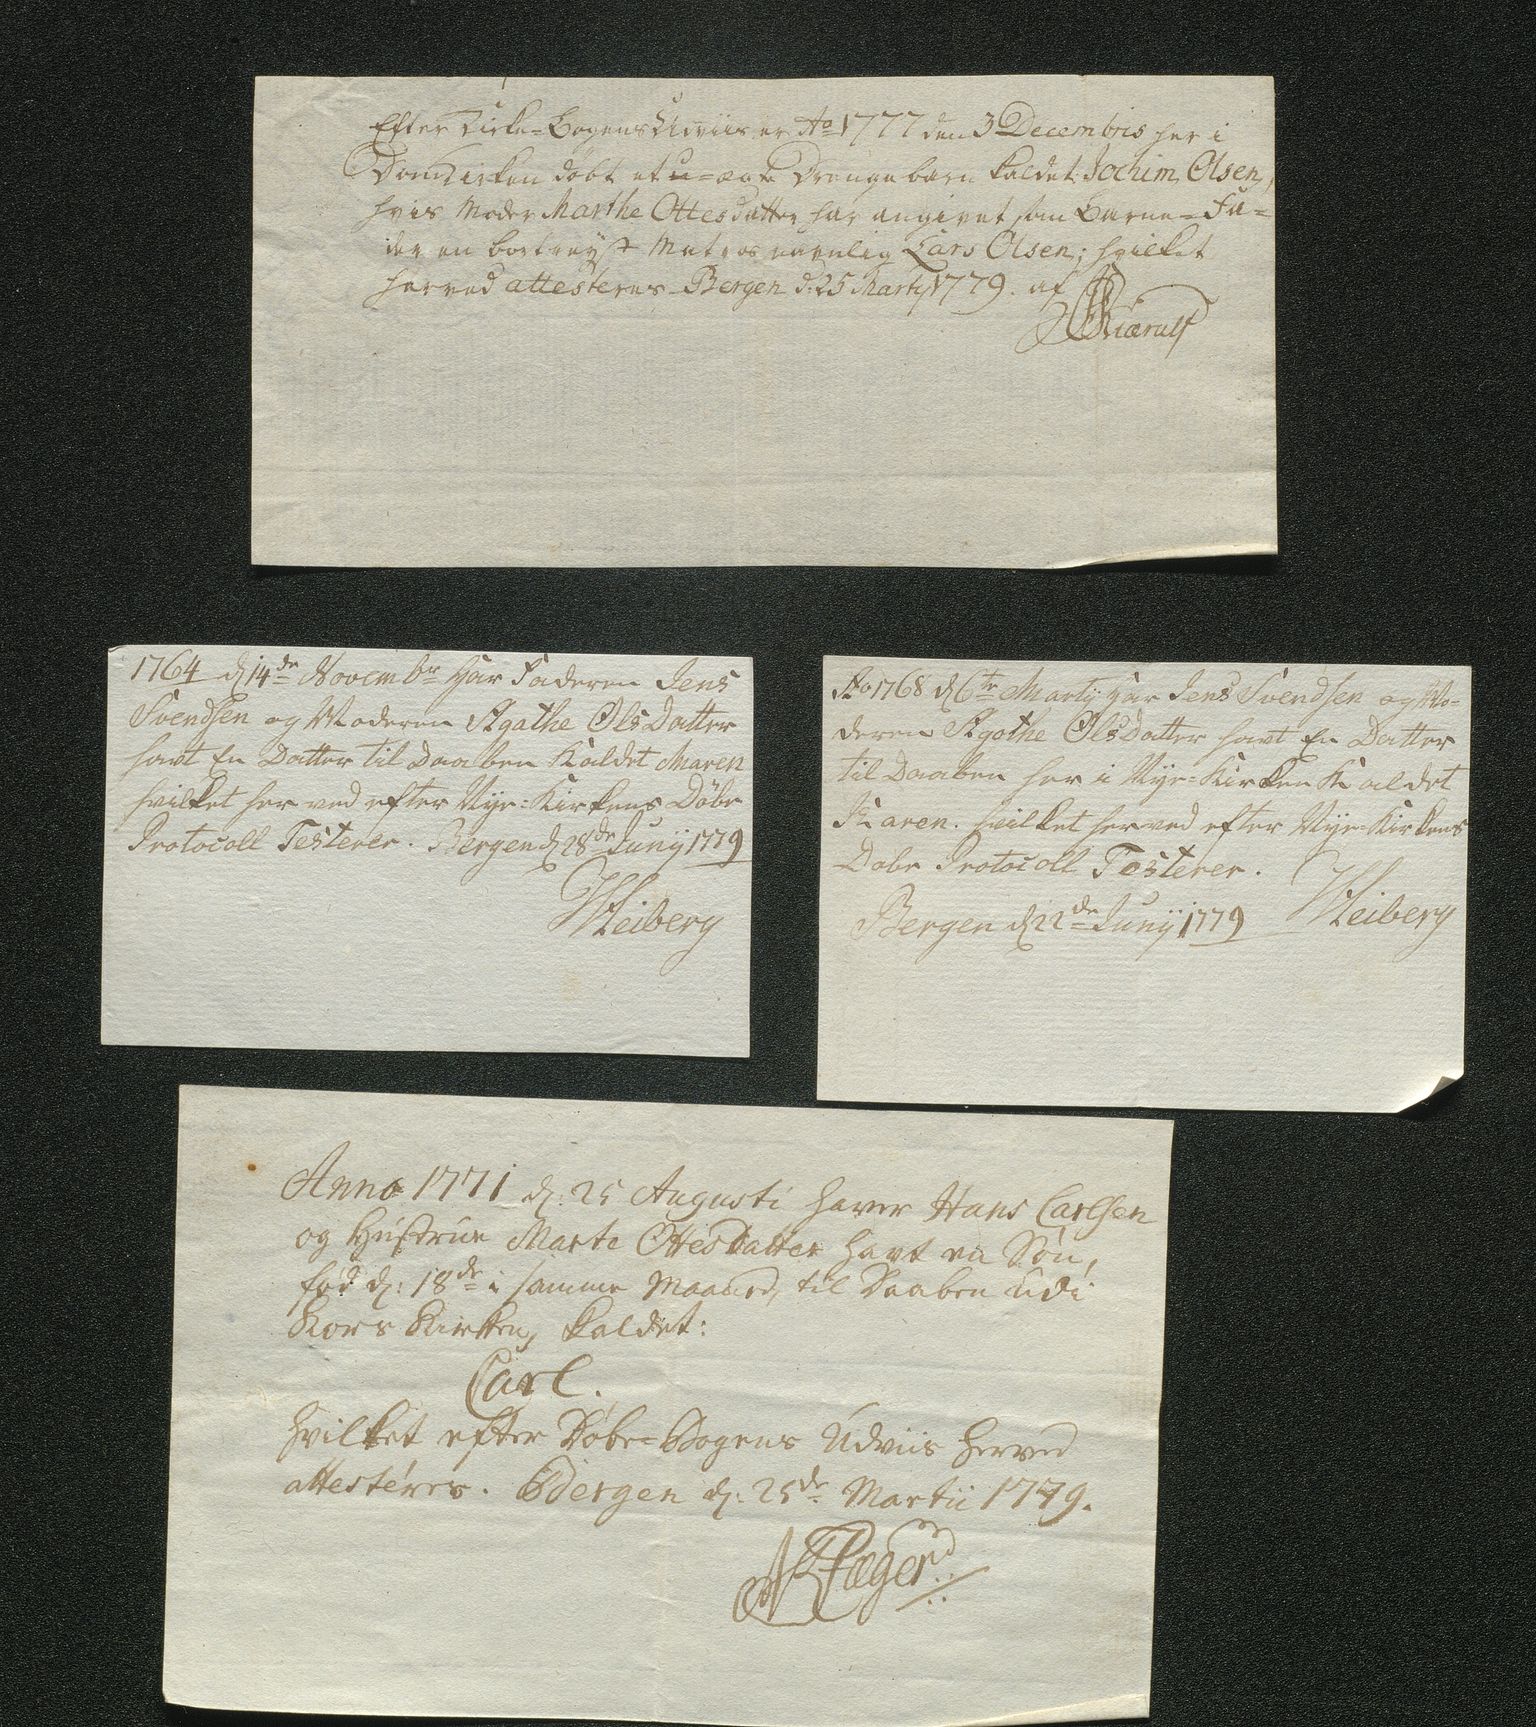 Efter Kirke-Bogens Udviis er Ao 1777 den 3 Decembris her i
DomKirken döbt et u-ægte Drengebarn kaldet Jochim Olsen,
hvis Moder Marthe Ottesdatter har angivet som Barne-Fa-
der en bortreyst Matros navnlig Lars Olsen; hvilket
herved attesteres. Bergen d. 25 Martij 1779. af
Kiærulf
1764 d. 14de Novembr Har Faderen Jens
Svendsen og Moderen Agathe OlsDatter
havt En Datter til Daaben Kaldet Maren
hvilket her ved efter Nye-Kirkens Döbe
Protocoll Testerer. Bergen d. 28de Junij 1779
Heiberg
Ao 1768 d. 6te Martij Har Jens Svendsen og Mo-
deren Agathe OlsDatter havt En Datter
til Daaben her i Nye-Kirken Kaldet
Karen. hvilket herved efter Nye-Kirkens
Döbe Protocoll Testerer.
Bergen d. 22de Junij 1779 Heiberg
Anno 1771 d. 25 Augusti haver Hans Carlsen
og Hustrue Marte Ottesdatter havt en Søn,
fød d. 18de i samme Maaned, til Daaben udi
Kors Kirken, kaldet:
Carl.
hvilket efter Döbe-Bogens Udviis herved
attesteres. Bergen d. 25de Martii 1779.